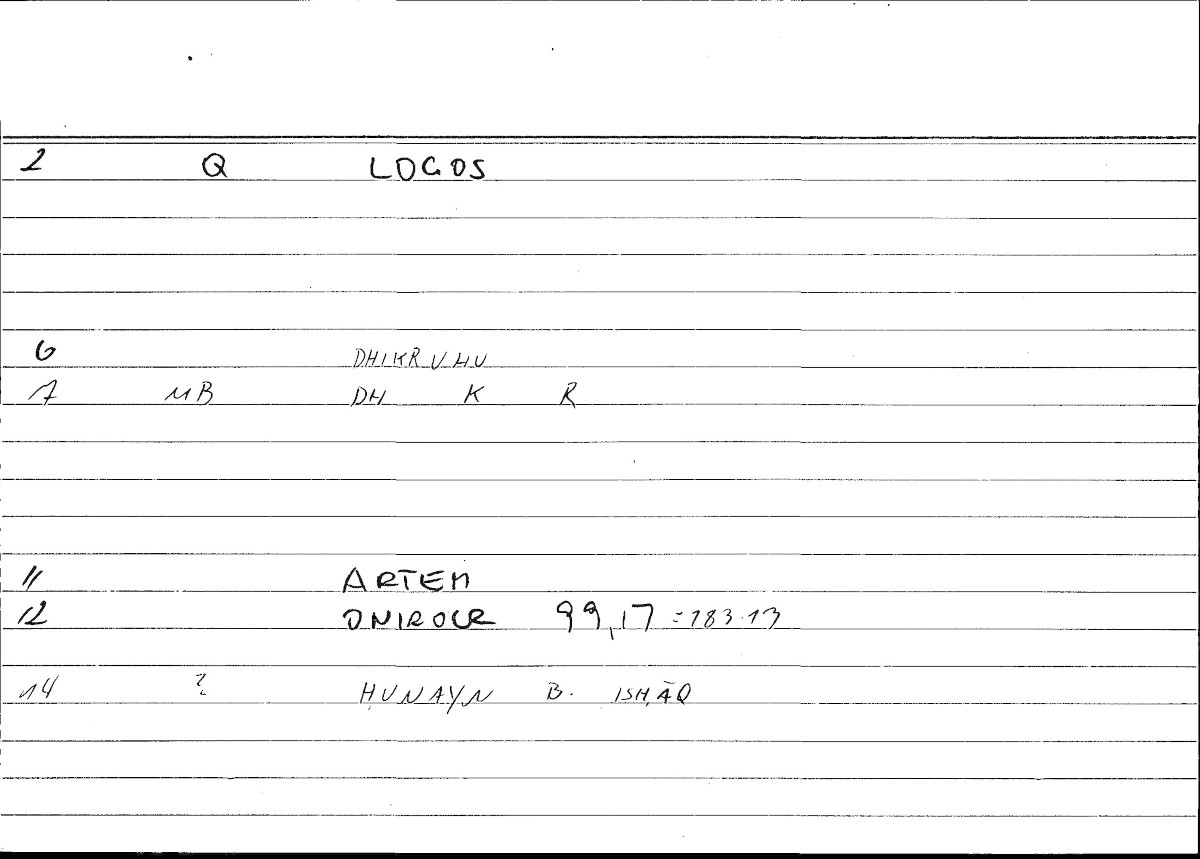 2 Q LOGOS
6 DHIKRUHU
7 MB DH K R
11 ARTEM
12 ONIROCR 99,17 =183.13
14 ? ḤUNAYN B. ISḤĀQ